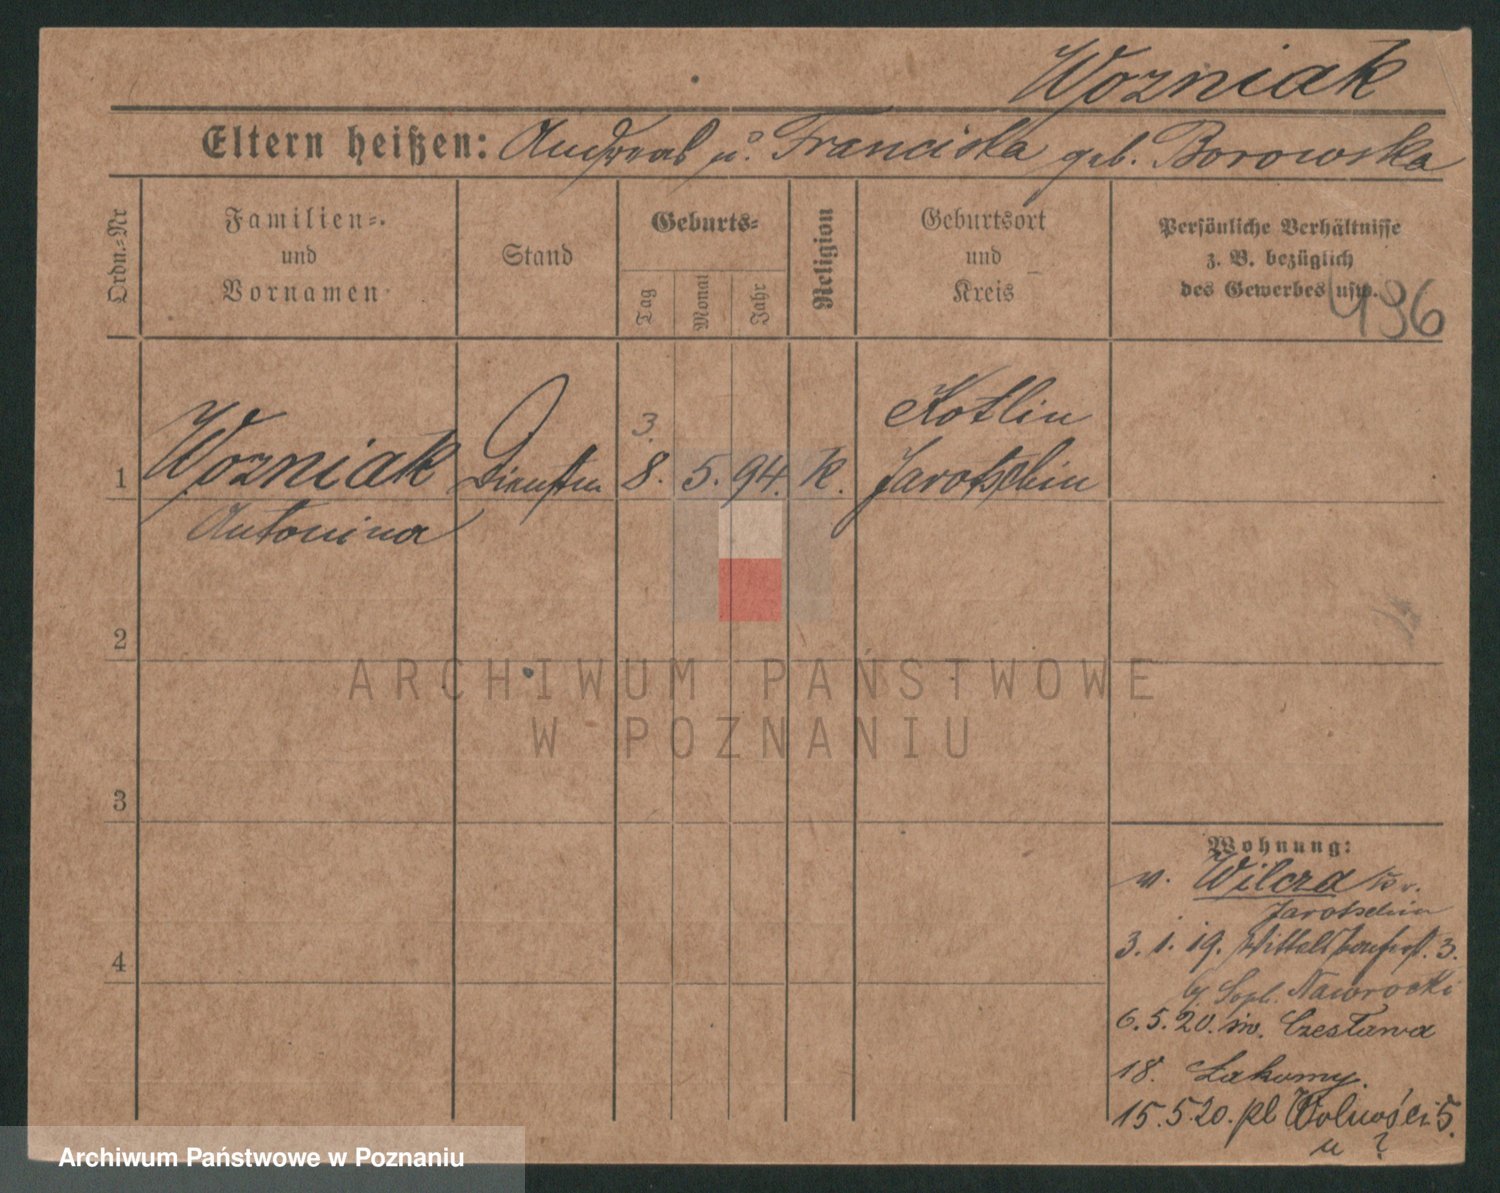 Wozniak
Eltern heißen: Andreas u. Franciska geb. Borowska
Ordn.=Nr
Familien=
und
Vornamen
Stand
Geburts=
Tag
Monat
Jahr
Religion
Geburtsort
und
Kreis
Persönliche Verhältnisse
z. B. bezüglich
des Gewerbes usw.
496
3.
Kotlin
1 Wozniak 8. 5. 94. K. Jarotschin
Antonina
2
ARCHIWUM PAŃSTWOWE
W POZNANIU
3
Wohnung:
v. Wilcza Kr.
Jarotschin
3.1.19. 3.
b/ Nawrocki
4
6.5.20. św. Czesława
18. Łakomy.
15.5.20. pl Wolności 5.
u ?
Archiwum Państwowe w Poznaniu